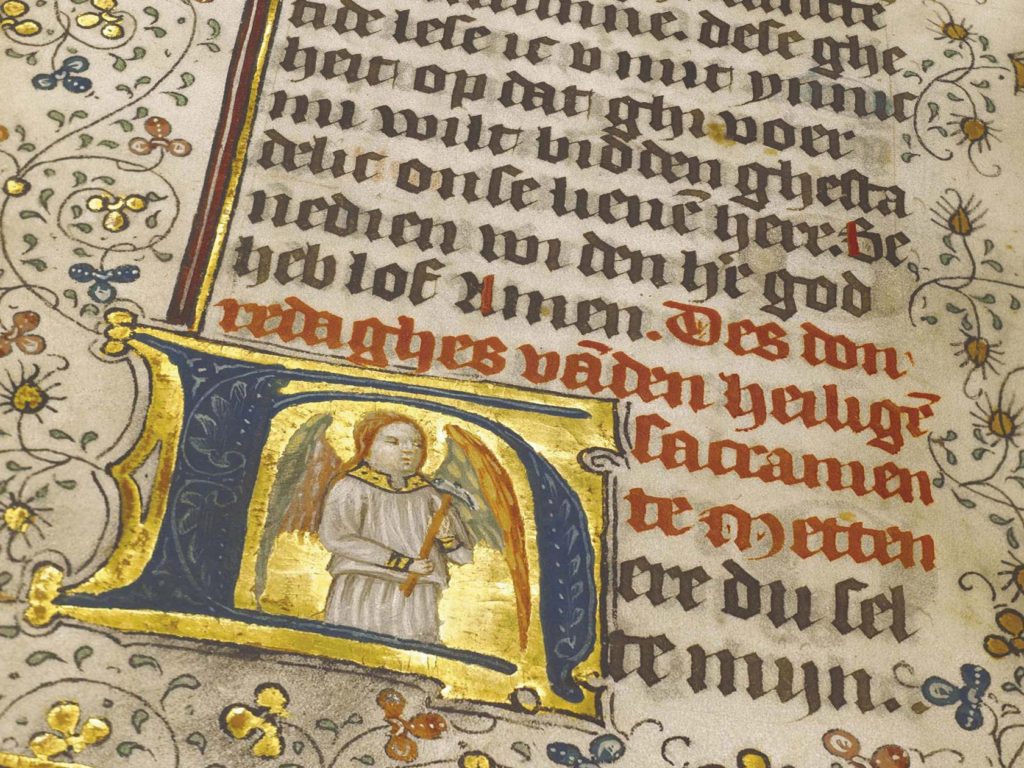 dese ghe
tide lese ic v mit ynnic
heit op dat ghi voer
mi wilt bidden ghesta
delic onse lieuē here. Be
nedien wi den hr̄e god
heb lof Amen. Des don
redaghes vāden heiligē
sacramen
te Metten
Here du sel
te mijn.